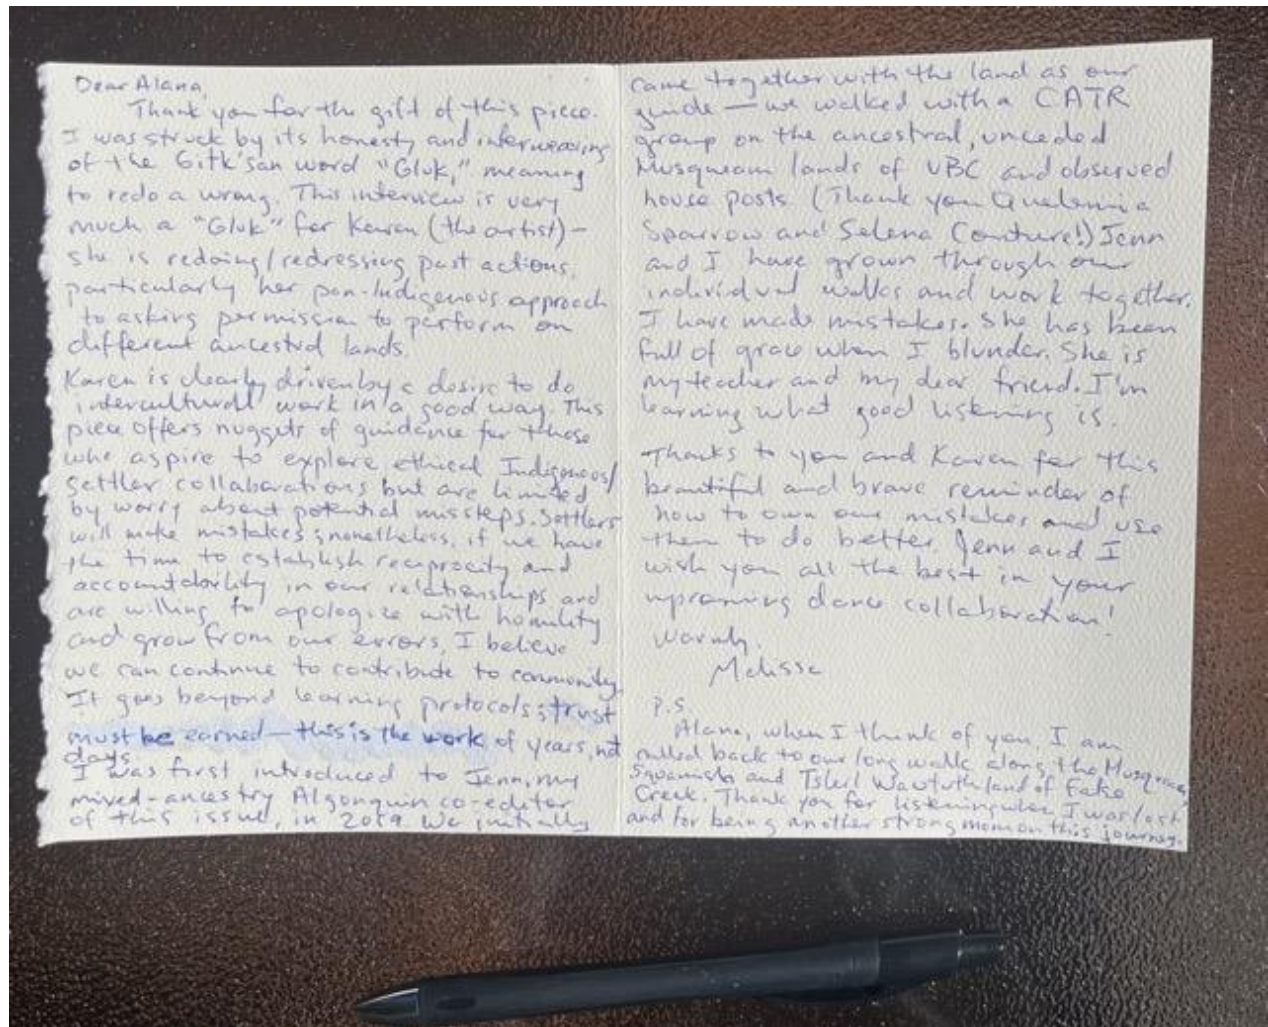 Dear Alana,
Thank you for the gift of this piece.
I was struck by its honesty and interweaving
of the Gitk'san word "Gluk," meaning
to redo a wrong. This interview is very
much a "Gluk" for Karen (the artist) –
she is redoing/redressing past actions,
particularly her pan-Indigenous approach
to asking permission to perform on
different ancestral lands.
Karen is clearly driven by a desire to do
intercultural work in a good way. This
piece offers nuggets of guidance for those
who aspire to explore ethical Indigenous/
settler collaborations but are limited
by worry about potential missteps. Settlers
will make mistakes; nonetheless, if we have
the time to establish reciprocity and
accountability in our relationships and
are willing to apologize with humility
and grow from our errors, I believe
we can continue to contribute to community.
It goes beyond learning protocols; trust
must be earned – this is the work of years, not
days.
I was first introduced to Jenn, my
mixed-ancestry Algonquin co-editor
of this issue, in 2019. We initially
came together with the land as our
guide – we walked with a CATR
group on the ancestral, unceded
Musqueam lands of UBC and observed
house posts (Thank you Quelemia
Sparrow and Selena Couture!) Jenn
and I have grown through our
individual walks and work together.
I have made mistakes. She has been
full of grace when I blunder. She is
my teacher and my dear friend. I'm
learning what good listening is.
Thanks to you and Karen for this
beautiful and brave reminder of
how to own our mistakes and use
them to do better. Jenn and I
wish you all the best in your
upcoming dance collaboration!
Warmly,
Melissa
P.S.
Alana, when I think of you, I am
pulled back to our long walk along the Musqueam
Squamish and Tsleil Waututh land of False
Creek. Thank you for listening when I was lost
and for being another strong mom on this journey.